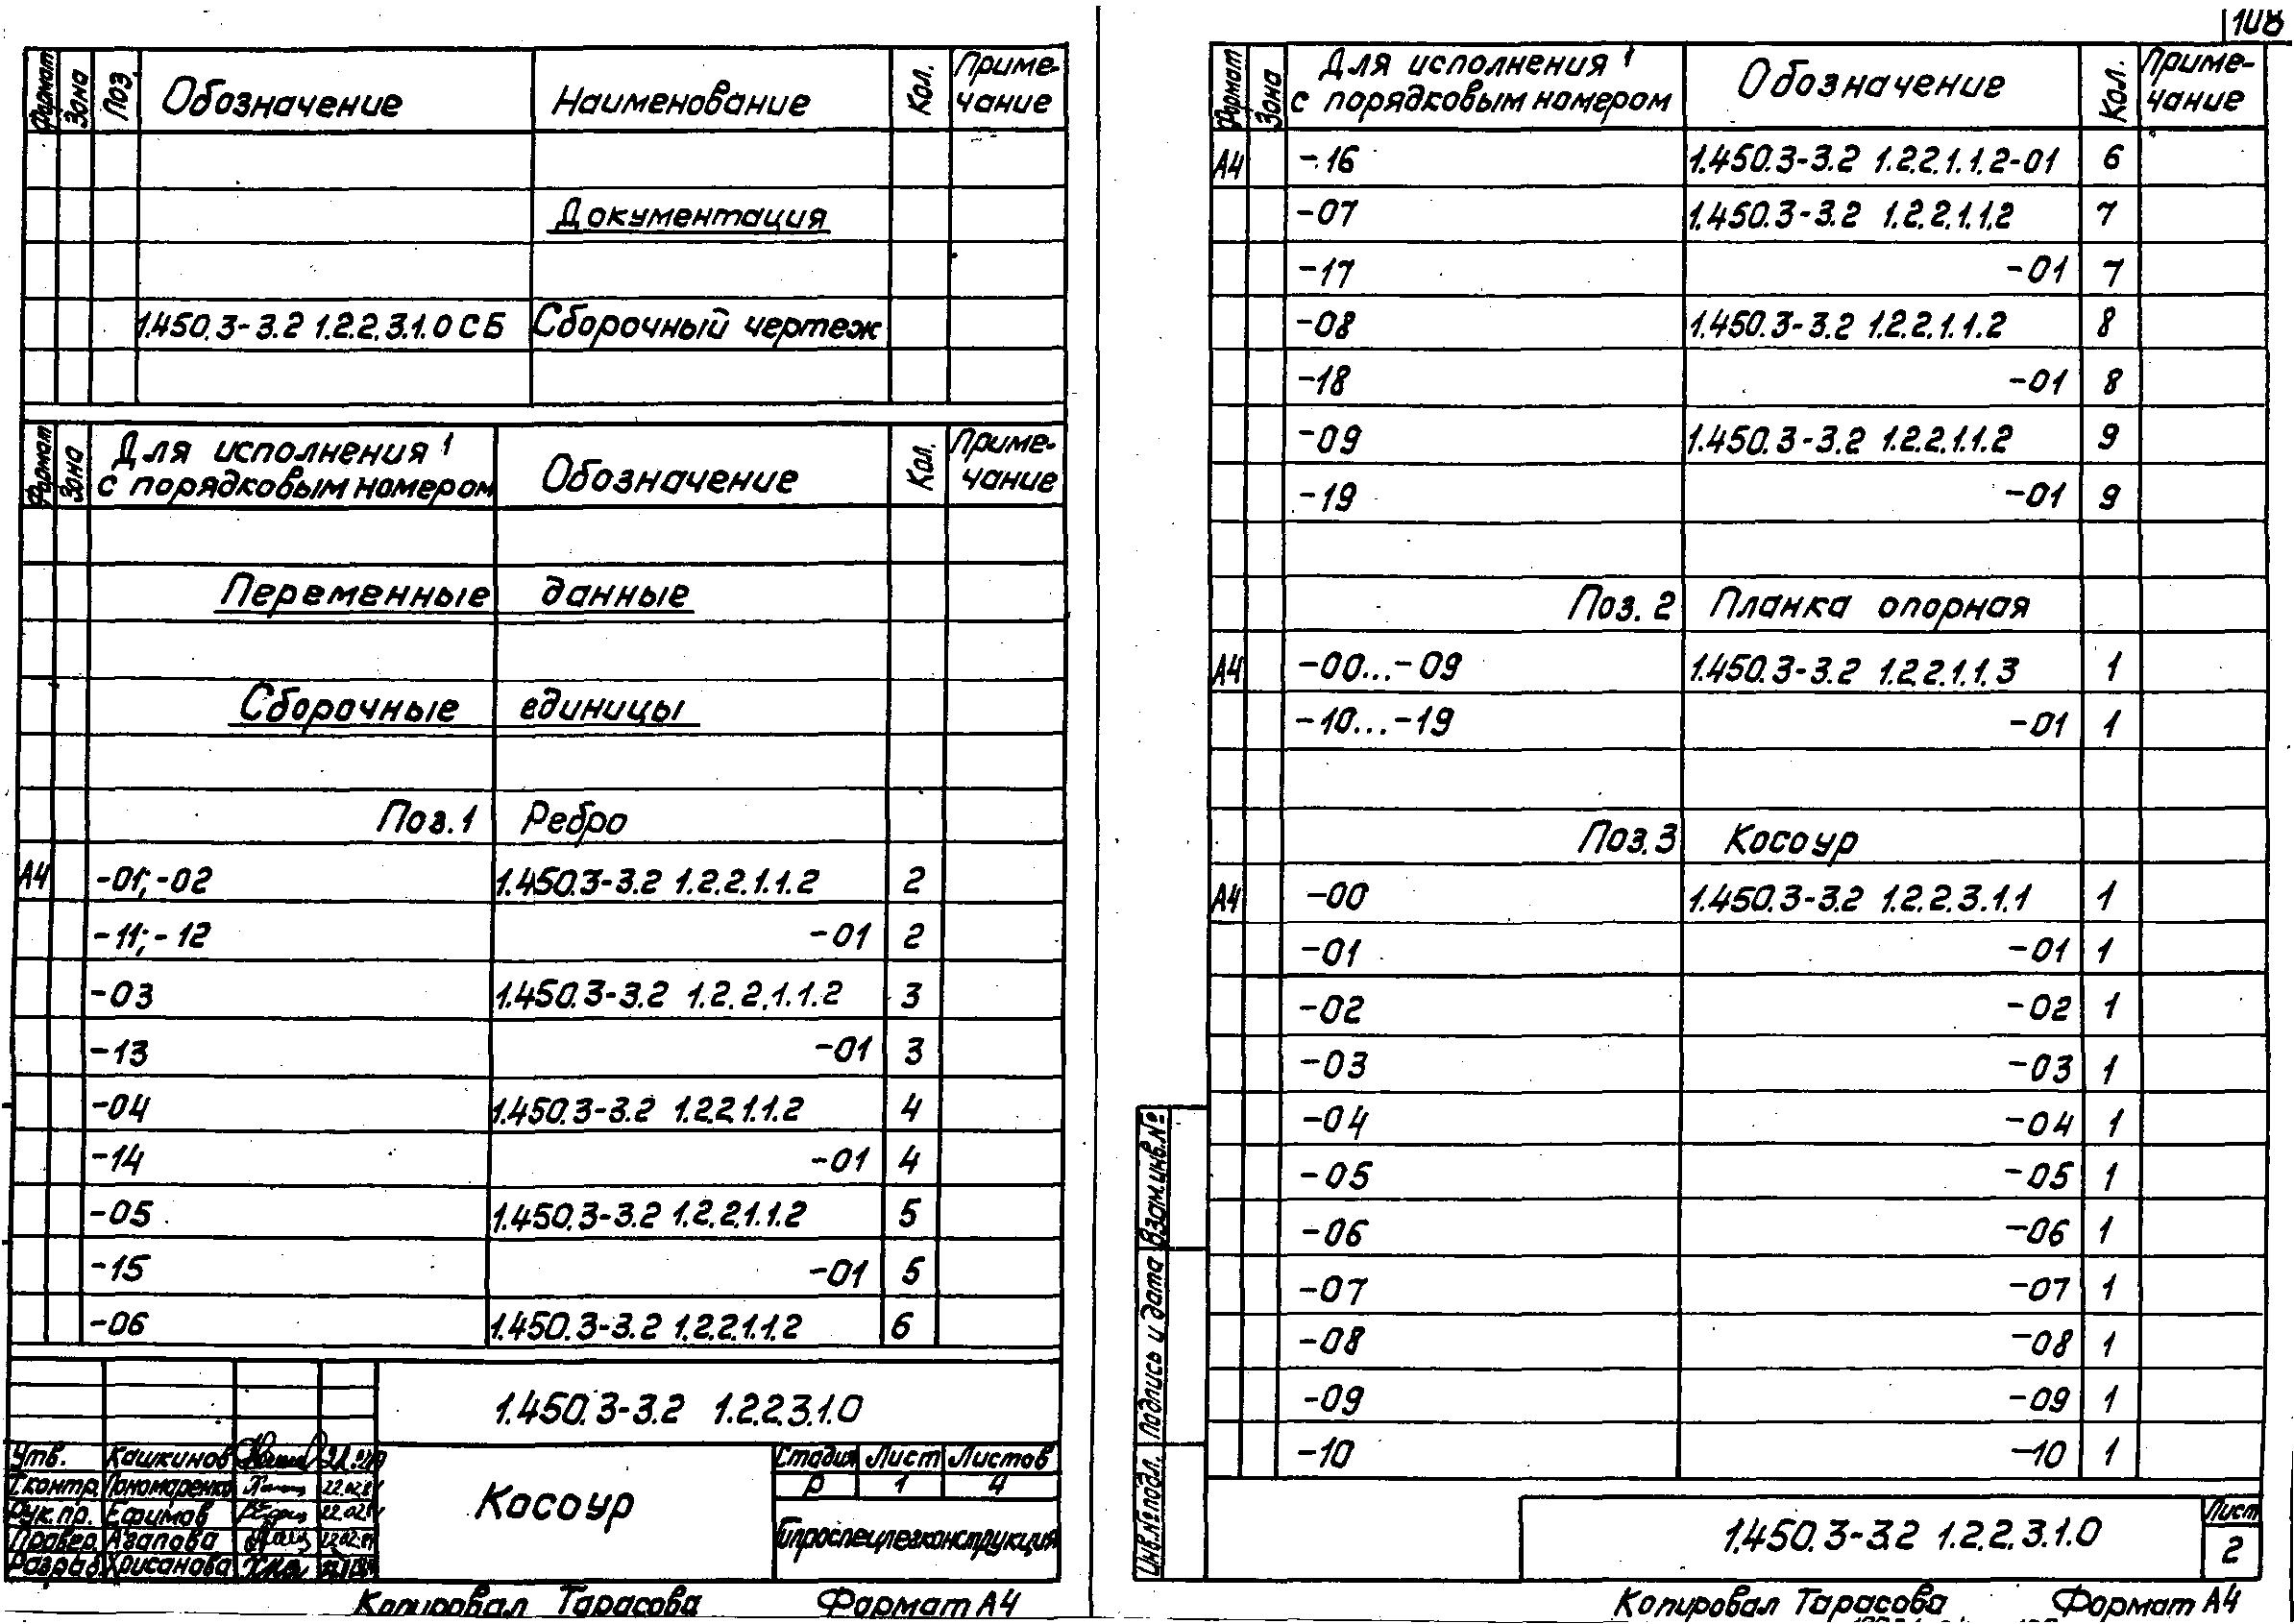 Формат Зона Поз. Обозначение Наименование Кол. Приме-
чание
Документация
1.450.3-3.2 1.2.2.3.1.0 СБ Сборочный чертеж
Формат Зона Для исполнения Обозначение Кол. Приме-
с порядковым номером чание
Переменные данные
Сборочные единицы
Поз.1 Ребро
А4 -01; -02 1.450.3-3.2 1.2.2.1.1.2 2
-11; -12 -01 2
-03 1.450.3-3.2 1.2.2.1.1.2 3
-13 -01 3
-04 1.450.3-3.2 1.2.2.1.1.2 4
-14 -01 4
-05 1.450.3-3.2 1.2.2.1.1.2 5
-15 -01 5
-06 1.450.3-3.2 1.2.2.1.1.2 6
1.450.3-3.2 1.2.2.3.1.0
Утв. Кашкинов
Т.контр. Пономаренко
Рук.пр. Ефимов
Провер. Агапова
Разраб. Хрисанова
Косоур
Стадия Лист Листов
Р 1 4
Гипроспецлегконструкция
Копировал Тарасова Формат А4
108
Формат Зона Для исполнения Обозначение Кол. Приме-
с порядковым номером чание
А4 -16 1.450.3-3.2 1.2.2.1.1.2-01 6
-07 1.450.3-3.2 1.2.2.1.1.2 7
-17 -01 7
-08 1.450.3-3.2 1.2.2.1.1.2 8
-18 -01 8
-09 1.450.3-3.2 1.2.2.1.1.2 9
-19 -01 9
Поз. 2 Планка опорная
А4 -00...-09 1.450.3-3.2 1.2.2.1.1.3 1
-10...-19 -01 1
Поз.3 Косоур
А4 -00 1.450.3-3.2 1.2.2.3.1.1 1
-01 -01 1
-02 -02 1
-03 -03 1
-04 -04 1
-05 -05 1
-06 -06 1
-07 -07 1
-08 -08 1
-09 -09 1
-10 -10 1
Инв.№подл. Подпись и дата Взам.инв.№
1.450.3-3.2 1.2.2.3.1.0
Лист
2
Копировал Тарасова Формат А4